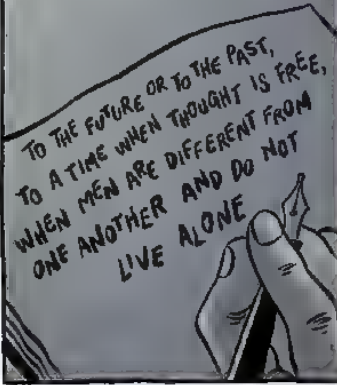 TO THE FUTURE OR TO THE PAST,
TO A TIME WHEN THOUGHT IS FREE,
WHEN MEN ARE DIFFERENT FROM
ONE ANOTHER AND DO NOT
LIVE ALONE